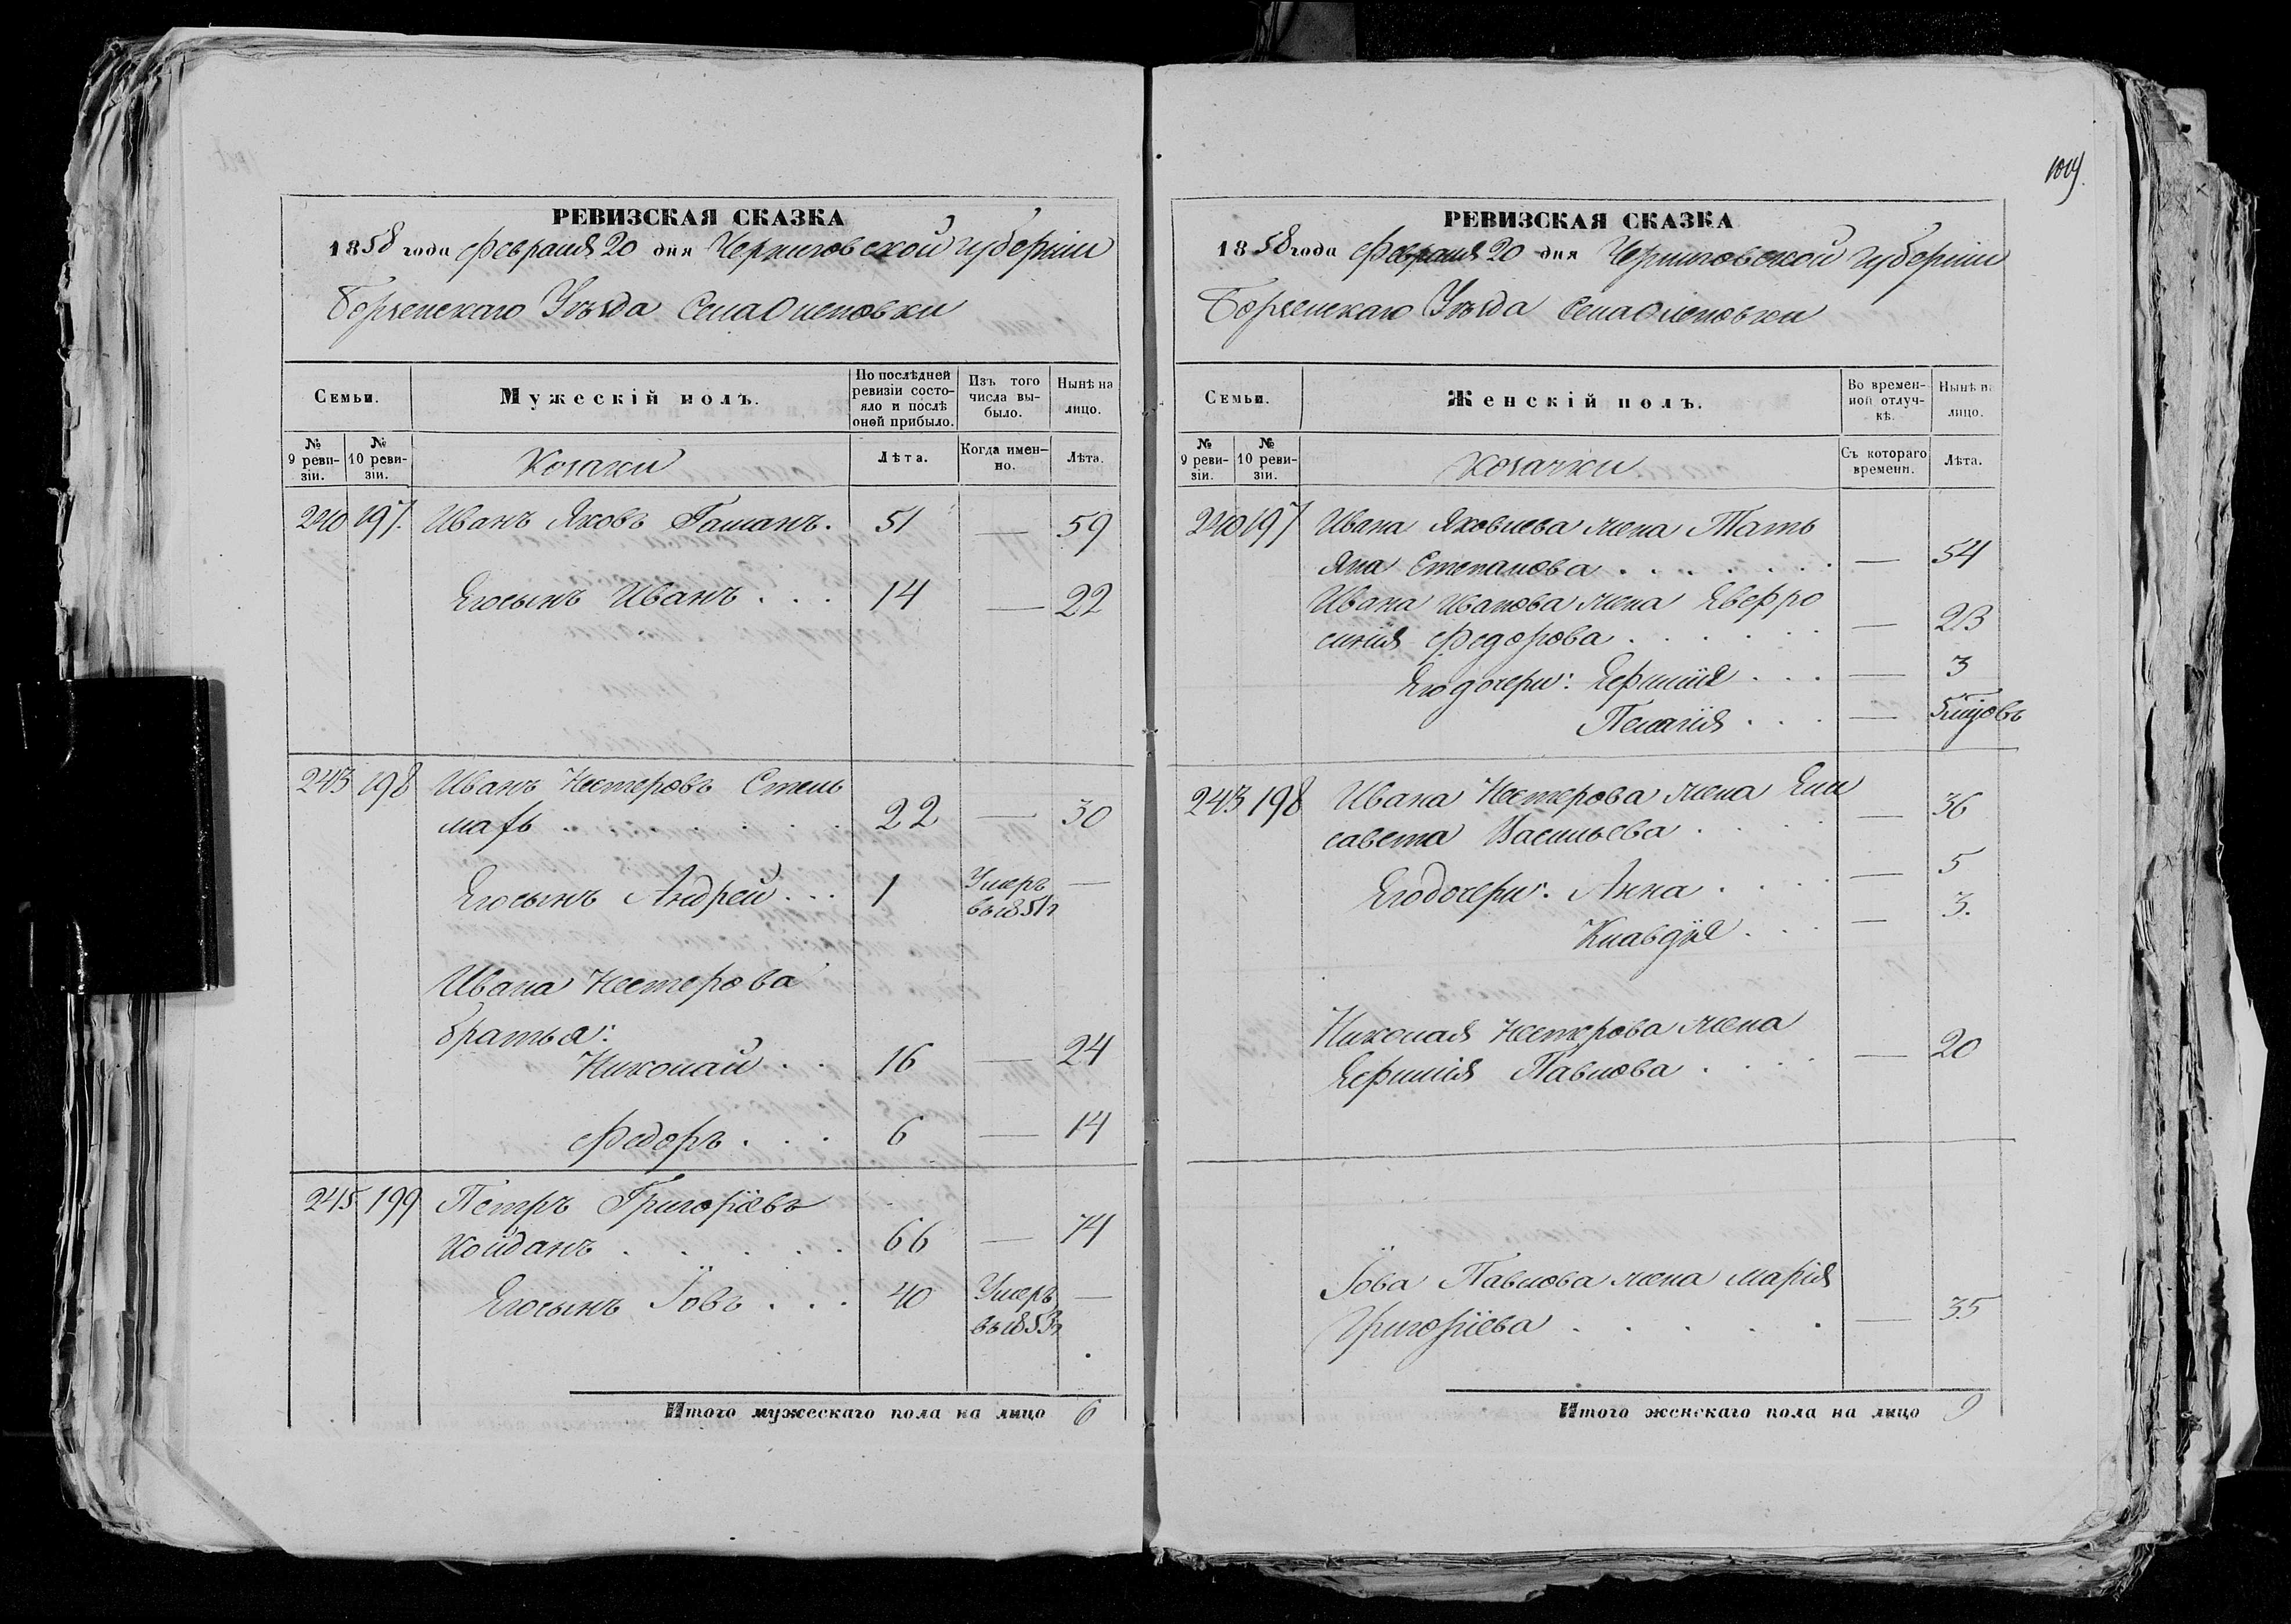 РЕВИЗСКАЯ СКАЗКА
1858 года Февраля 20 дня Черниговской губернiи
Борзенскаго Уѣзда Села Оленовки
Семьи.
Мужескiй полъ.
По послѣдней ревизiи состояло и послѣ оной прибыло.
Изъ того числа выбыло.
Нынѣ на лицо.
№ 9 ревизiи.
№ 10 ревизiи.
Козаки
Лѣта.
Когда именно.
Лѣта.
240 197. Иванъ Яковъ Гаманъ. 51 — 59
Его сынъ Иванъ . . . 14 — 22
243 198 Иванъ Нестеровъ Стель
махъ . . . . . . 22 — 30
Его сынъ Андрей . . . 1 Умеръ —
въ 1851 г
Ивана Нестерова
братья:
Николай . . 16 — 24
Федоръ . . . 6 — 14
245 199 Петръ Григорiевъ
Койданъ . . . . . 66 — 74
Его сынъ Iовъ . . . 40 Умеръ —
въ 1853 г
Итого мужескаго пола на лицо 6
1009
РЕВИЗСКАЯ СКАЗКА
1858 года Февраля 20 дня Черниговской губернiи
Борзенскаго Уѣзда Села Оленовки
Семьи.
Женскiй полъ.
Во временной отлучкѣ.
Нынѣ на лицо.
№ 9 ревизiи.
№ 10 ревизiи.
Козачки
Съ котораго времени.
Лѣта.
240 197 Ивана Яковлева жена Тать
яна Степанова . . . . . . . — 54
Ивана Иванова жена Евфро
синiя Федорова . . . . . . — 23
Его дочери: Ефимiя . . . — 3
Пелагiя . . . — 5 мѣсцовъ
243 198 Ивана Нестерова жена Ели
савета Васильева . . . . — 36
Его дочери: Анна . . . . — 5
Клавдiя . . . — 3.
Николая Нестерова жена
Ефимiя Павлова . . . . — 20
Iова Павлова жена Марiя
Григорiева . . . . . . — 35
Итого женскаго пола на лицо 9